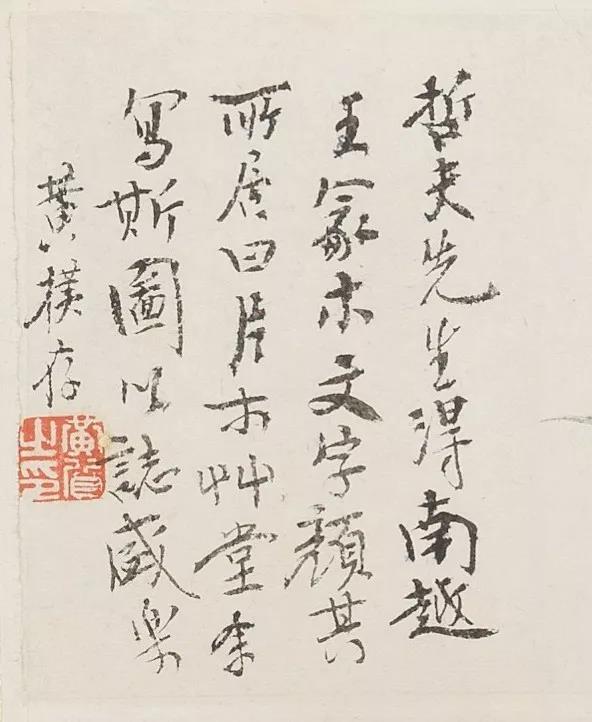 哲夫先生得南越
王冢木文字顏其
所居曰片木艸堂余
寫斯圖以誌盛
黃樸存
黃質
之印